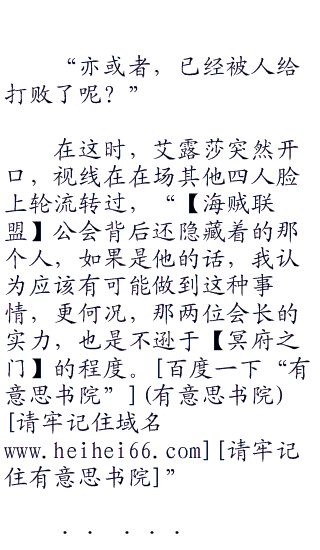 “亦或者，已经被人给
打败了呢？”
在这时，艾露莎突然开
口，视线在在场其他四人脸
上轮流转过，“【海贼联
盟】公会背后还隐藏着的那
个人，如果是他的话，我认
为应该有可能做到这种事
情，更何况，那两位会长的
实力，也是不逊于【冥府之
门】的程度。[百度一下“有
意思书院”](有意思书院)
[请牢记住域名
www.heihei66.com][请牢记
住有意思书院]”
．．．．．